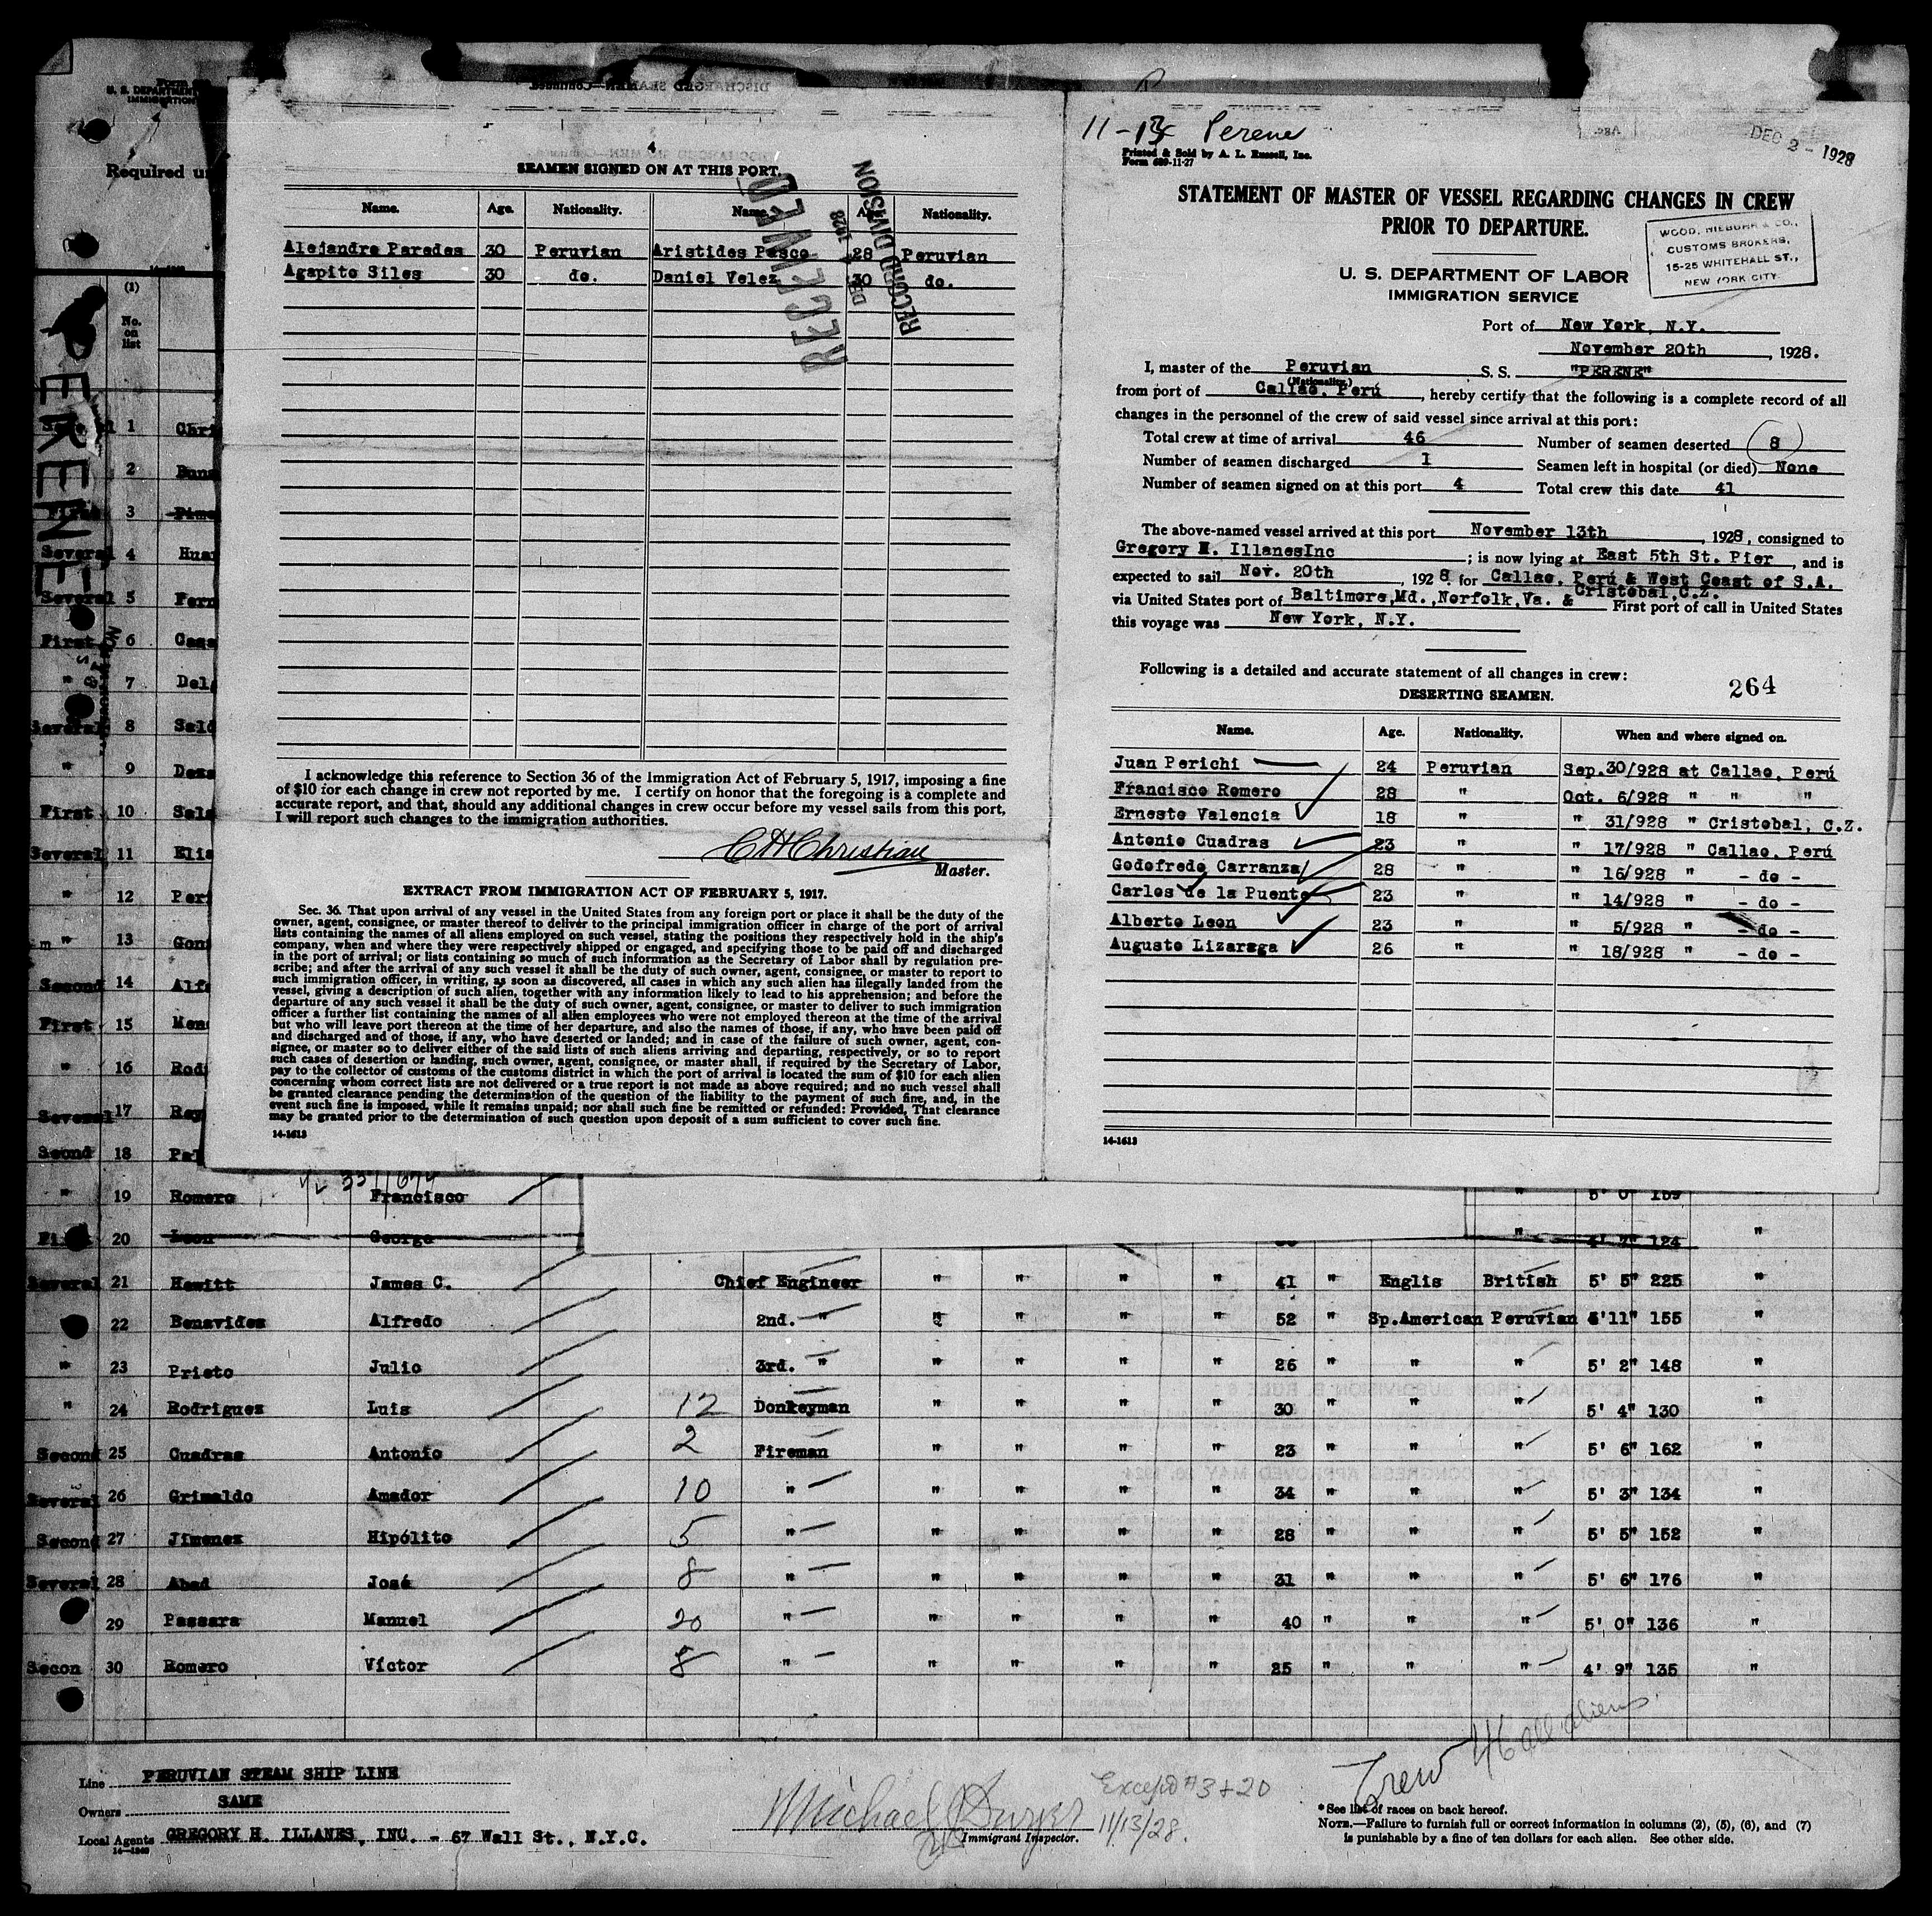 4
SEAMEN SIGNED ON AT THIS PORT.
Name. Age. Nationality. Name. Age. Nationality.
Alejandro Paredes 30 Peruvian Aristides Pasco 28 Peruvian
Agapito Siles 30 do. Daniel Velez 30 do.
RECEIVED
1928
RECORD DIVISION
I acknowledge this reference to Section 36 of the Immigration Act of February 5, 1917, imposing a fine
of $10 for each change in crew not reported by me. I certify on honor that the foregoing is a complete and
accurate report, and that, should any additional changes in crew occur before my vessel sails from this port,
I will report such changes to the immigration authorities.
C H Christian
Master.
EXTRACT FROM IMMIGRATION ACT OF FEBRUARY 5, 1917.
Sec. 36. That upon arrival of any vessel in the United States from any foreign port or place it shall be the duty of the
owner, agent, consignee, or master thereof to deliver to the principal immigration officer in charge of the port of arrival
lists containing the names of all aliens employed on such vessel, stating the positions they respectively hold in the ship's
company, when and where they were respectively shipped or engaged, and specifying those to be paid off and discharged
in the port of arrival; or lists containing so much of such information as the Secretary of Labor shall by regulation pre-
scribe; and after the arrival of any such vessel it shall be the duty of such owner, agent, consignee, or master to report to
such immigration officer, in writing, as soon as discovered, all cases in which any such alien has illegally landed from the
vessel, giving a description of such alien, together with any information likely to lead to his apprehension; and before the
departure of any such vessel it shall be the duty of such owner, agent, consignee, or master to deliver to such immigration
officer a further list containing the names of all alien employees who were not employed thereon at the time of the arrival
but who will leave port thereon at the time of her departure, and also the names of those, if any, who have been paid off
and discharged and of those, if any, who have deserted or landed; and in case of the failure of such owner, agent, con-
signee, or master so to deliver either of the said lists of such aliens arriving and departing, respectively, or so to report
such cases of desertion or landing, such owner, agent, consignee, or master shall, if required by the Secretary of Labor,
pay to the collector of customs of the customs district in which the port of arrival is located the sum of $10 for each alien
concerning whom correct lists are not delivered or a true report is not made as above required; and no such vessel shall
be granted clearance pending the determination of the question of the liability to the payment of such fine, and, in the
event such fine is imposed, while it remains unpaid; nor shall such fine be remitted or refunded: Provided, That clearance
may be granted prior to the determination of such question upon deposit of a sum sufficient to cover such fine.
14-1613
11-13 Perene
Printed & Sold by A. L. Russell, Inc.
Form 689-11-27
DEC 2 - 1928
STATEMENT OF MASTER OF VESSEL REGARDING CHANGES IN CREW
PRIOR TO DEPARTURE.
WOOD, NIEBUHR & CO.,
CUSTOMS BROKERS,
15-25 WHITEHALL ST.,
NEW YORK CITY
U. S. DEPARTMENT OF LABOR
IMMIGRATION SERVICE
Port of New York, N.Y.
November 20th, 1928.
I, master of the Peruvian S. S. "PERENE"
(Nationality.)
from port of Callao, Perú, hereby certify that the following is a complete record of all
changes in the personnel of the crew of said vessel since arrival at this port:
Total crew at time of arrival 46 Number of seamen deserted 8
Number of seamen discharged 1 Seamen left in hospital (or died) None
Number of seamen signed on at this port 4 Total crew this date 41
The above-named vessel arrived at this port November 13th, 1928, consigned to
Gregory H. IllanesInc; is now lying at East 5th St. Pier, and is
expected to sail Nov. 20th, 1928. for Callao, Perú & West Coast of S.A.
via United States port of Baltimore,Md.,Norfolk,Va. & Cristobal,C.Z. First port of call in United States
this voyage was New York, N.Y.
Following is a detailed and accurate statement of all changes in crew:
DESERTING SEAMEN.
264
Name. Age. Nationality. When and where signed on.
Juan Perichi 24 Peruvian Sep.30/928 at Callao, Perú
Francisco Romero 28 " Oct. 6/928 " " "
Ernesto Valencia 18 " " 31/928 " Cristobal, C.Z.
Antonio Cuadras 23 " " 17/928 " Callao, Perú
Godofredo Carranza 28 " " 16/928 " - do -
Carlos de la Puente 23 " " 14/928 " - do -
Alberto Leon 23 " " 5/928 " - do -
Augusto Lizaraga 26 " " 18/928 " - do -
14-1613
U. S. DEPARTMENT
IMMIGRATION
Required un
PERENE
(1)
No.
on
list
1 Chri
2
First 3
Several 4 Huar
Several 5 Fern
First 6 Casa
" 7 Delg
Several 8 Sald
" 9
First 10
Several 11 Elis
" 12
" 13
Second 14 Alf
First 15
" 16 Rod
Several 17
Second 18
" 19 Romero Francisco " 5' 0" 159
20 Leon George " 4' 7" 124 "
Several 21 Hewitt James C. Chief Engineer " " " " 41 " Englis British 5' 5" 225 "
22 Benavides Alfredo 2nd. " " " " " 52 " Sp.American Peruvian 5'11" 155 "
" 23 Prieto Julio 3rd. " " " " " 26 " " " 5' 2" 148 "
" 24 Rodriguez Luis 12 Donkeyman " " " " 30 " " " 5' 4" 130 "
Second 25 Cuadras Antonio 2 Fireman " " " " 23 " " " 5' 6" 162 "
Several 26 Grimaldo Amador 10 " " " " " 34 " " " 5' 3" 134 "
Second 27 Jimenez Hipólito 5 " " " " " 28 " " " 5' 5" 152 "
Several 28 Abad José 8 " " " " " 31 " " " 5' 6" 176 "
29 Passara Manuel 20 " " " " " 40 " " " 5' 0" 136 "
Secon 30 Romero Víctor 8 " " " " " 25 " " " 4' 9" 135 "
Crew 46 all aliens
Line PERUVIAN STEAM SHIP LINE
Owners SAME
Local Agents GREGORY H. ILLANES, INC. - 67 Wall St., N.Y.C.
Michael
Immigrant Inspector.
Except #3+20
11/13/28.
*See list of races on back hereof.
NOTE.—Failure to furnish full or correct information in columns (2), (5), (6), and (7)
is punishable by a fine of ten dollars for each alien. See other side.